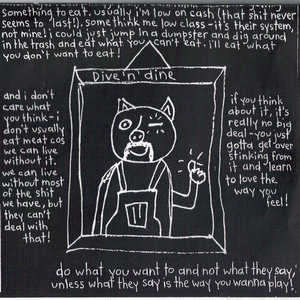 something to eat. usually i'm low on cash (that shit never
seems to last!). some think me low class - it's their system,
not mine! i could just jump in a dumpster and dig around
in the trash and eat what you can't eat. i'll eat what
you don't want to eat!
Dive 'n' dine
and i don't
care what
you think - i
don't usually
eat meat cos
we can live
without it.
we can live
without most
of the shit
we have, but
they can't
deal with
that!
if you think
about it, it's
really no big
deal - you just
gotta get over
stinking from
it and learn
to love the
way you
feel!
do what you want to and not what they say,
unless what they say is the way you wanna play!